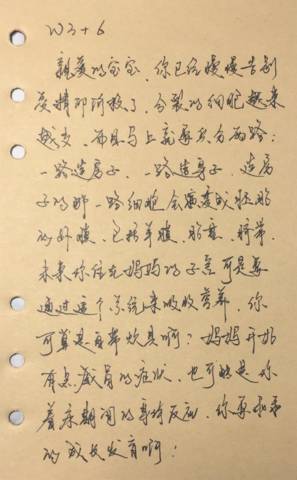 W3+6
亲爱的宝宝、你已经慢慢告别
受精卵阶段了,分裂的细胞越来
越多,而且马上就要兵分两路:
一路造房子,一路造身子,造房
子的那一路细胞会演变成胚胎
的外膜、包括羊膜、胎囊、脐带.
未来你住在妈妈的子宫可是要
通过这个系统来吸收营养,你
可算是自带炊具啊?妈妈开始
有点感冒的症状,也可能是你
着床期间的身体反应,你要乖乖
的成长发育啊!